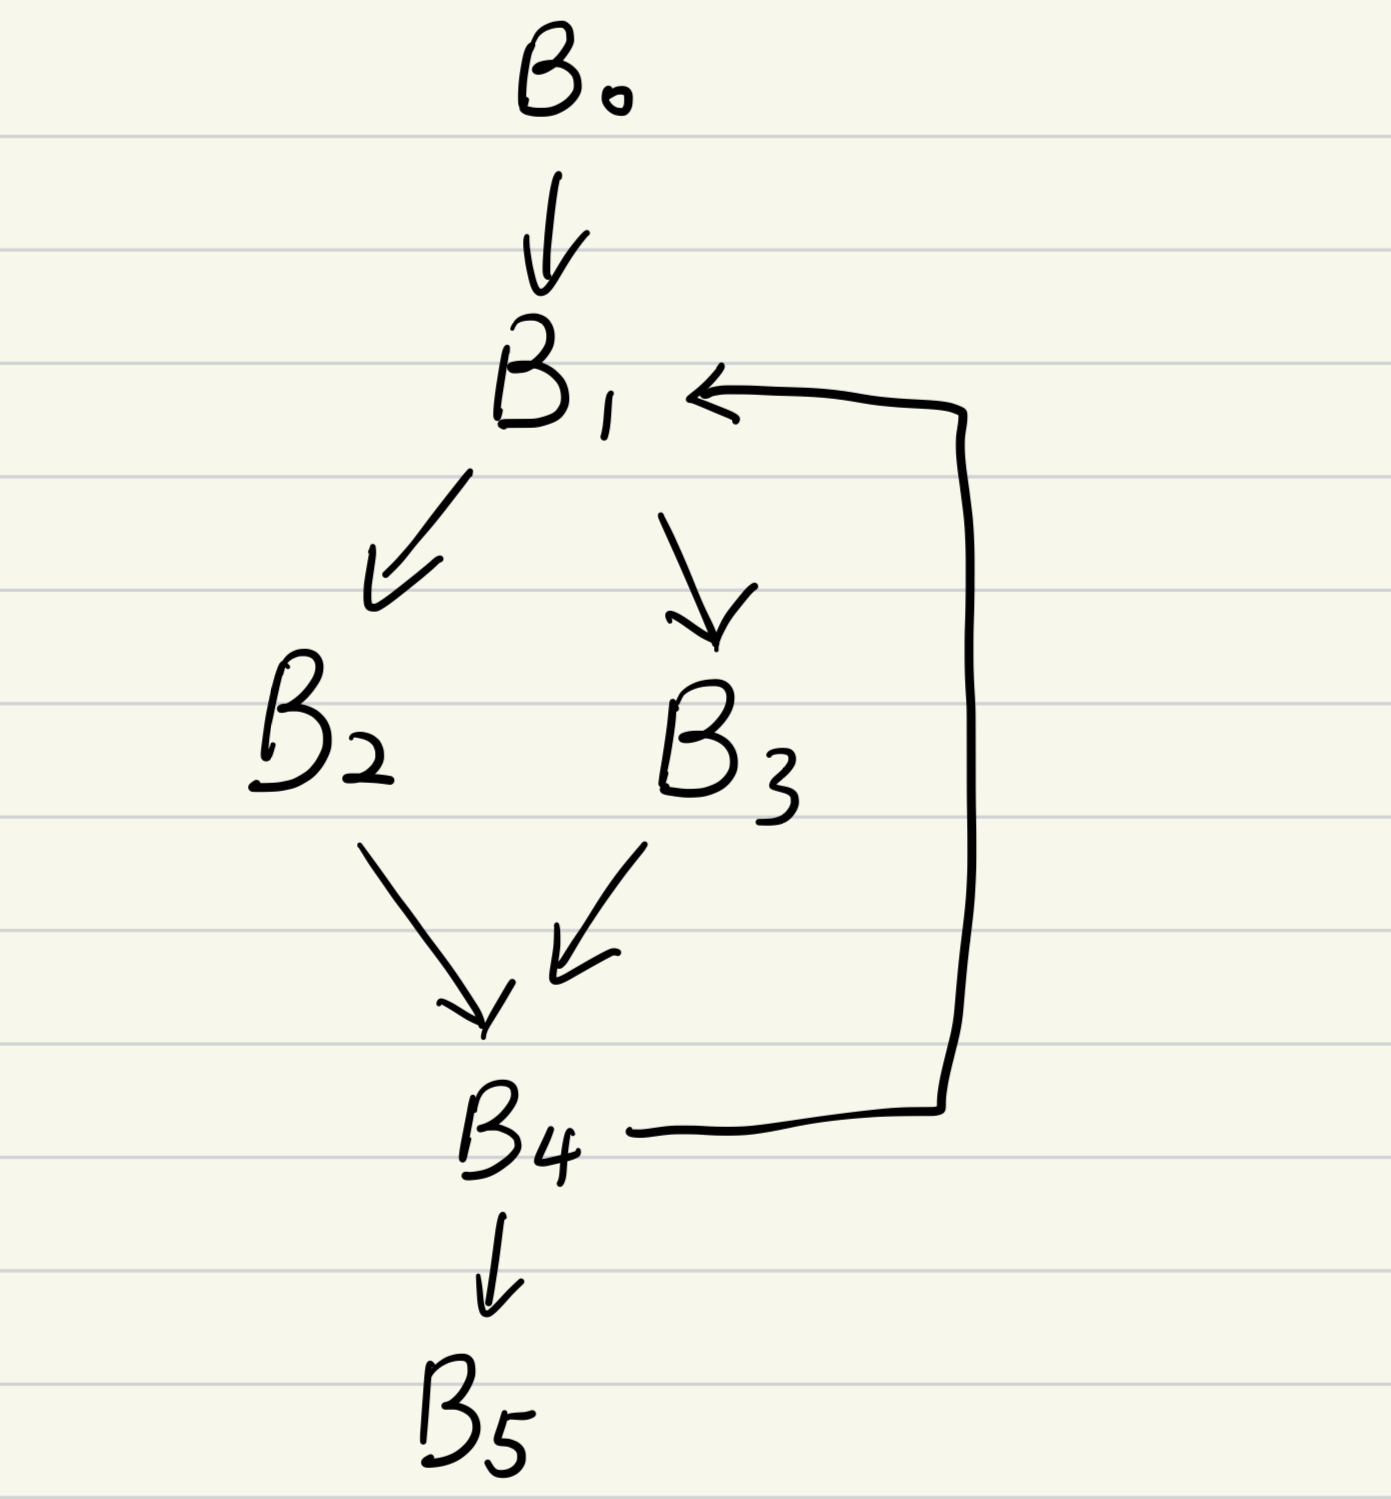 B0
B1
B2 B3
B4
B5